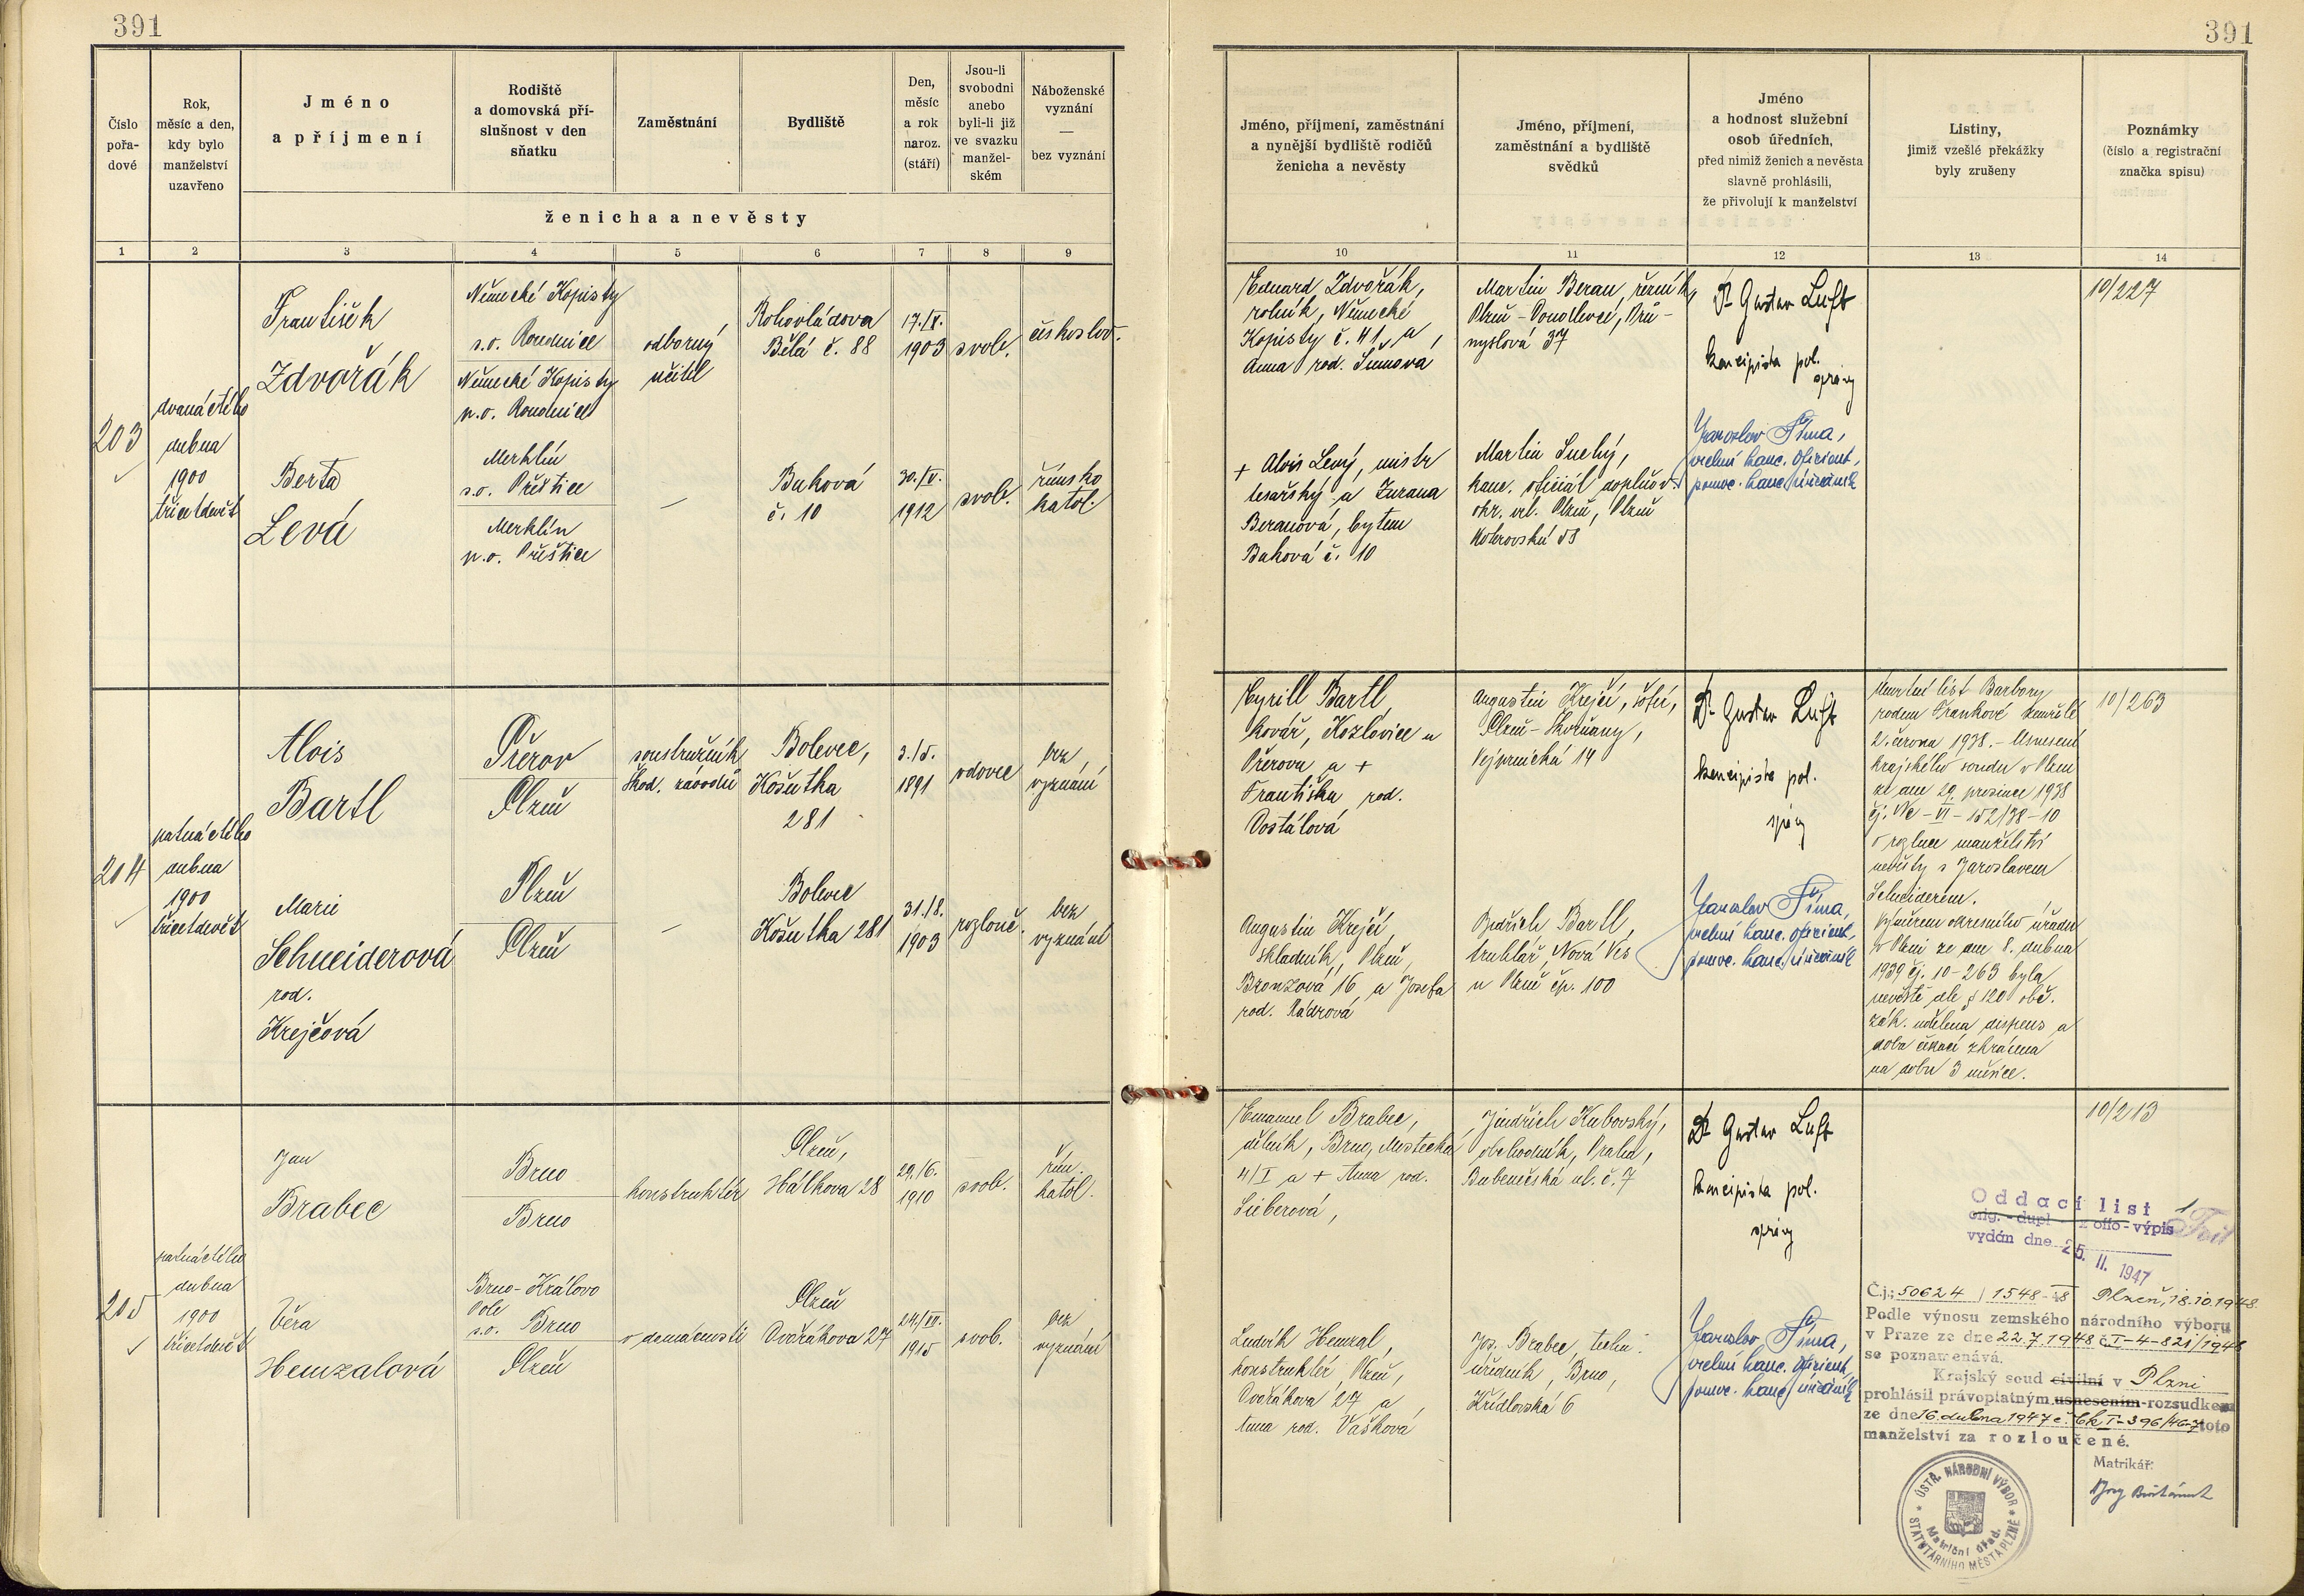 391
391
Číslo
pořa-
dové
Rok,
měsíc a den,
kdy bylo
manželství
uzavřeno
Jméno
a příjmení
Rodiště
a domovská pří-
slušnost v den
sňatku
Zaměstnání
Bydliště
Den,
měsíc
a rok
naroz.
(stáří)
Jsou-li
svobodni
anebo
byli-li již
ve svazku
manžel-
ském
Náboženské
vyznání
—
bez vyznání
ženicha a nevěsty
1 2 3 4 5 6 7 8 9
Jméno, příjmení, zaměstnání
a nynější bydliště rodičů
ženicha a nevěsty
Jméno, příjmení,
zaměstnání a bydliště
svědků
Jméno
a hodnost služební
osob úředních,
před nimiž ženich a nevěsta
slavně prohlásili,
že přivolují k manželství
Listiny,
jimiž vzešlé překážky
byly zrušeny
Poznámky
(číslo a registrační
značka spisu)
10 11 12 13 14
203
dvanáctého
dubna
1900
třicetdevět
František
Zdvořák
Německé Kopisty
s.o. Roudnice
Německé Kopisty
p.o. Roudnice
odborný
učitel
Rohovládova
Bělá č. 88
17./X.
1903
svob.
českoslov.
Berta
Levá
Merklín
s.o. Přeštice
Merklín
p.o. Přeštice
—
Buková
č. 10
1912
svob.
římsko
katol.
Eduard Zdvořák,
rolník, Německé
Kopisty č. 41, a
Anna rod.
Martin Beran, řezník,
Plzeň - Doudlevce, Prů-
myslová 37
Dr Gustav Luft
koncipista pol.
správy
10/227
+ Alois Levý, mistr
tesařský a Zuzana
Beranová, bytem
Buková č. 10
Martin Suchý,
kanc. oficiál doplňov.
okr. vel. Plzeň, Plzeň
Koterovská 58
Jaroslav Šíma,
vrchní kanc. oficiant,
pomoc. kanc. úředník
204
patnáctého
dubna
1900
třicetdevět
Alois
Bartl
Přerov
Plzeň
soustružník
Škod. závodů
Bolevec,
Košutka
281
3./5.
1891
vdovec
bez
vyznání
Marie
Schneiderová
rod.
Krejčová
Plzeň
Plzeň
—
Bolevec
Košutka 281
31./8.
1903
rozlouč.
bez
vyznání
Cyrill Bartl,
kovář, Kozlovice u
Přerova a +
Františka rod.
Dostálová
Augustin Krejčí, šofér,
Plzeň - Skvrňany,
Vejprnická 14
Dr Gustav Luft
koncipista pol.
správy
Úmrtní list Barbory
rodem Frankové zemřelé
2. června 1938. - Usnesení
krajského soudu v Plzni
ze dne 29. prosince 1938
čj. Nc - VI - 152/38 - 10
o rozluce manželství
nevěsty s Jaroslavem
Schneiderem.
Výměrem okresního úřadu
v Plzni ze dne 8. dubna
1939 čj. 10-263 byla
nevěstě dle § 120 obč.
zák. udělena dispens a
doba čekací zkrácena
na dobu 3 měsíce.
10/263
Augustin Krejčí,
skladník, Plzeň,
Bronzová 16, a Josefa
rod. Kádrová
Bedřich Bartl,
truhlář, Nová Ves
u Plzně čp. 100
Jaroslav Šíma,
vrchní kanc. oficiant,
pomoc. kanc. úředník
205
patnáctého
dubna
1900
třicetdevět
Jan
Brabec
Brno
Brno
konstruktér
Plzeň,
Hálkova 28
29./6.
1910
svob.
řím.
katol.
Věra
Hemzalová
Brno - Královo
Pole
s.o. Brno
Plzeň
v domácnosti
Plzeň
Dvořákova 27
1915
svob.
bez
vyznání
Emanuel Brabec,
dělník, Brno, Mostecká
4/I a + Anna rod.
Sieberová,
Jindřich Kubovský,
obchodník, Praha,
Bubenečská ul. č. 7
Dr Gustav Luft
koncipista pol.
správy
10/213
Oddací list
orig. - dupl - z offo - výpis
vydán dne 25. II. 1947
Ludvík Hemzal,
konstruktér, Plzeň,
Dvořákova 27 a
Anna rod. Vašková
Jos. Brabec, techn.
úředník, Brno,
Křídlovská 6
Jaroslav Šíma,
vrchní kanc. oficiant,
pomoc. kanc. úředník
Č.j.: 50624 / 1548-48 Plzeň, 18.10.1948.
Podle výnosu zemského národního výboru
v Praze ze dne 22.7.1948 č. I-4-821/1948
se poznamenává,
Krajský soud civilní v Plzni
prohlásil právoplatným usnesením - rozsudkem
ze dne 16. dubna 1947 č. Ck I-396/46-7 toto
manželství za rozloučené.
Matrikář:
ÚSTŘ. NÁRODNÍ VÝBOR
STATUTÁRNÍHO MĚSTA PLZNĚ
Matriční úřad.